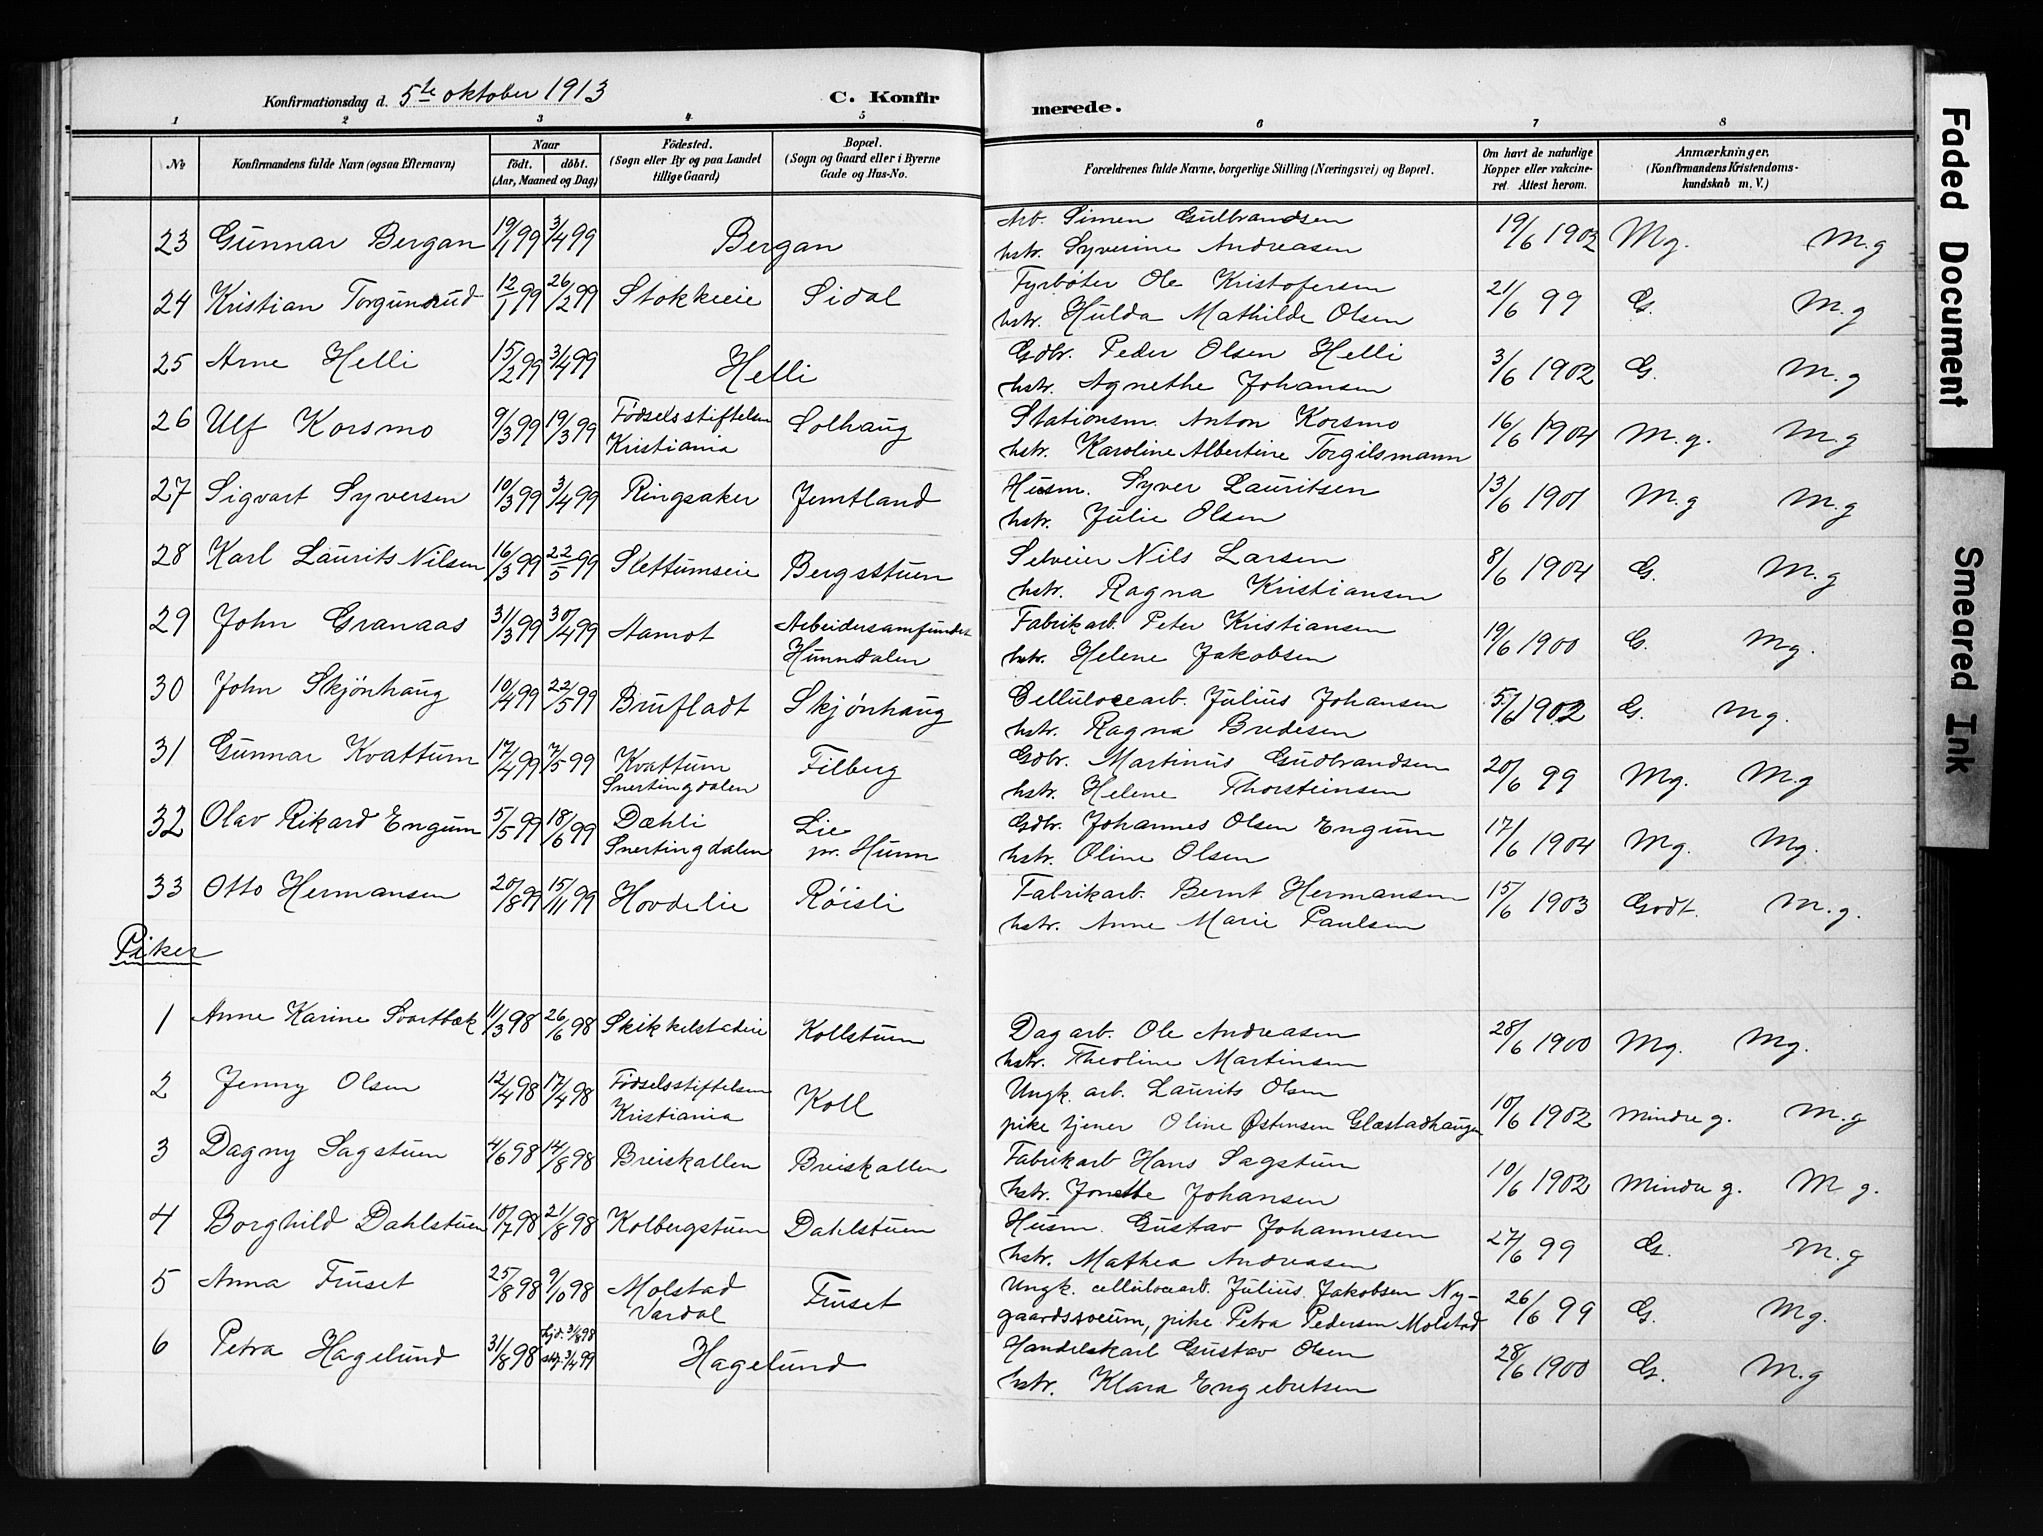 Konfirmationsdag d. 5te oktober 1913 C. Konfirmerede.
1 2 3 4 5 6 7 8
No Konfirmandens fulde Navn (ogsaa Efternavn) Naar født. døbt. (Aar, Maaned og Dag) Fødested. (Sogn eller By og paa Landet tillige Gaard) Bopæl. (Sogn og Gaard eller i Byerne Gade og Hus-No. Forældrenes fulde Navne, borgerlige Stilling (Næringsvei) og Bopæl. Om havt de naturlige Kopper eller vakcineret. Attest herom. Anmærkninger, (Konfirmandens Kristendomskundskab m. V.)
23 Gunnar Bergan 19/1 99 3/4 99 Bergan Arb. Simen Gulbrandsen
hstr. Syverine Andreasen 19/6 1902 Mg. M.g
24 Kristian Torgunrud 12/1 99 26/2 99 Stokkeie Sidal Fyrbøter Ole Kristofersen
hstr. Hulda Mathilde Olsen 21/6 99 G. M.g
25 Arne Helli 15/2 99 3/4 99 Helli Gdbr. Peder Olsen Helli
hstr. Agnethe Johansen 3/6 1902 G. M.g
26 Ulf Korsmo 9/3 99 19/3 99 Fødselsstiftelsen Kristiania Solhaug Stationsm. Anton Korsmo
hstr. Karoline Albertine Torgilsmann 16/6 1904 M.g. M.g
27 Sigvart Syversen 10/3 99 3/4 99 Ringsaker Jemtland Husm. Syver Lauritsen
hstr. Julie Olsen 13/6 1901 M.g M.g
28 Karl Laurits Nilsen 16/3 99 22/5 99 Slettumseie Bergsttuen Selveier Nils Larsen
hstr. Ragna Kristiansen 8/6 1904 G. M.g
29 John Granaas 31/3 99 30/4 99 Aamot Arbeidersamfundet Hunndalen Fabrikarb. Peter Kristiansen
hstr. Helene Jakobsen 19/6 1900 G. Mg.
30 John Skjønhaug 10/4 99 22/5 99 Brufladt Skjønhaug Cellulocearb. Julius Johansen
hstr. Ragna Bredesen 5/6 1902 G. Mg.
31 Gunnar Kvattum 17/4 99 7/5 99 Kvattum Snertingdalen Filberg Gdbr. Martinus Gudbrandsen
hstr. Helene Thorsteinsen 20/6 99 Mg. M.g
32 Olav Rikard Engum 5/5 99 18/6 99 Dæhli Snertingdalen Lie pr. Hunn Gdbr. Johannes Olsen Engum
hstr. Oline Olsen 17/6 1904 Mg. Mg.
33 Otto Hermansen 20/8 99 15/11 99 Hovdelie Røisli Fabrikarb. Bernt Hermansen
hstr. Anne Marie Paulsen 15/6 1903 Godt. M.g.
Piker
1 Anne Karine Svartbæk 11/3 98 26/6 98 Skikkelstadeie Kollstuen Dagarb. Ole Andreasen
hstr. Theoline Martinsen 28/6 1900 Mg. Mg.
2 Jenny Olsen 12/4 98 17/4 98 Fødselsstiftelsen Kristiania Koll Ungk. arb. Laurits Olsen
pike tjener Oline Østensen Glæstadhaugen 10/6 1902 Mindre g. M.g
3 Dagny Sagstuen 4/6 98 14/8 98 Breiskallen Breiskallen Fabrikarb Hans Sagstuen
hstr. Jonette Johansen 10/6 1902 Mindre g. M g.
4 Borghild Dahlstuen 10/7 98 21/8 98 Kolbergstuen Dahlstuen Husm. Gustav Johannesen
hstr. Mathea Andreasen 27/6 99 G. M.g
5 Anna Fruset 25/8 98 9/10 98 Molstad Vardal Fruset Ungk. cellulocearb. Julius Jakobsen Ny-
gaardssveum, pike Petra Pedersen Molstad 26/6 99 G. Mg.
6 Petra Hagelund 31/8 98 hjd. 3/8 98 stf. 3/4 99 Hagelund Handelskarl Gustav Olsen
hstr. Klara Engebretsen 28/6 1900 G. M.g
Faded Document
Smeared Ink